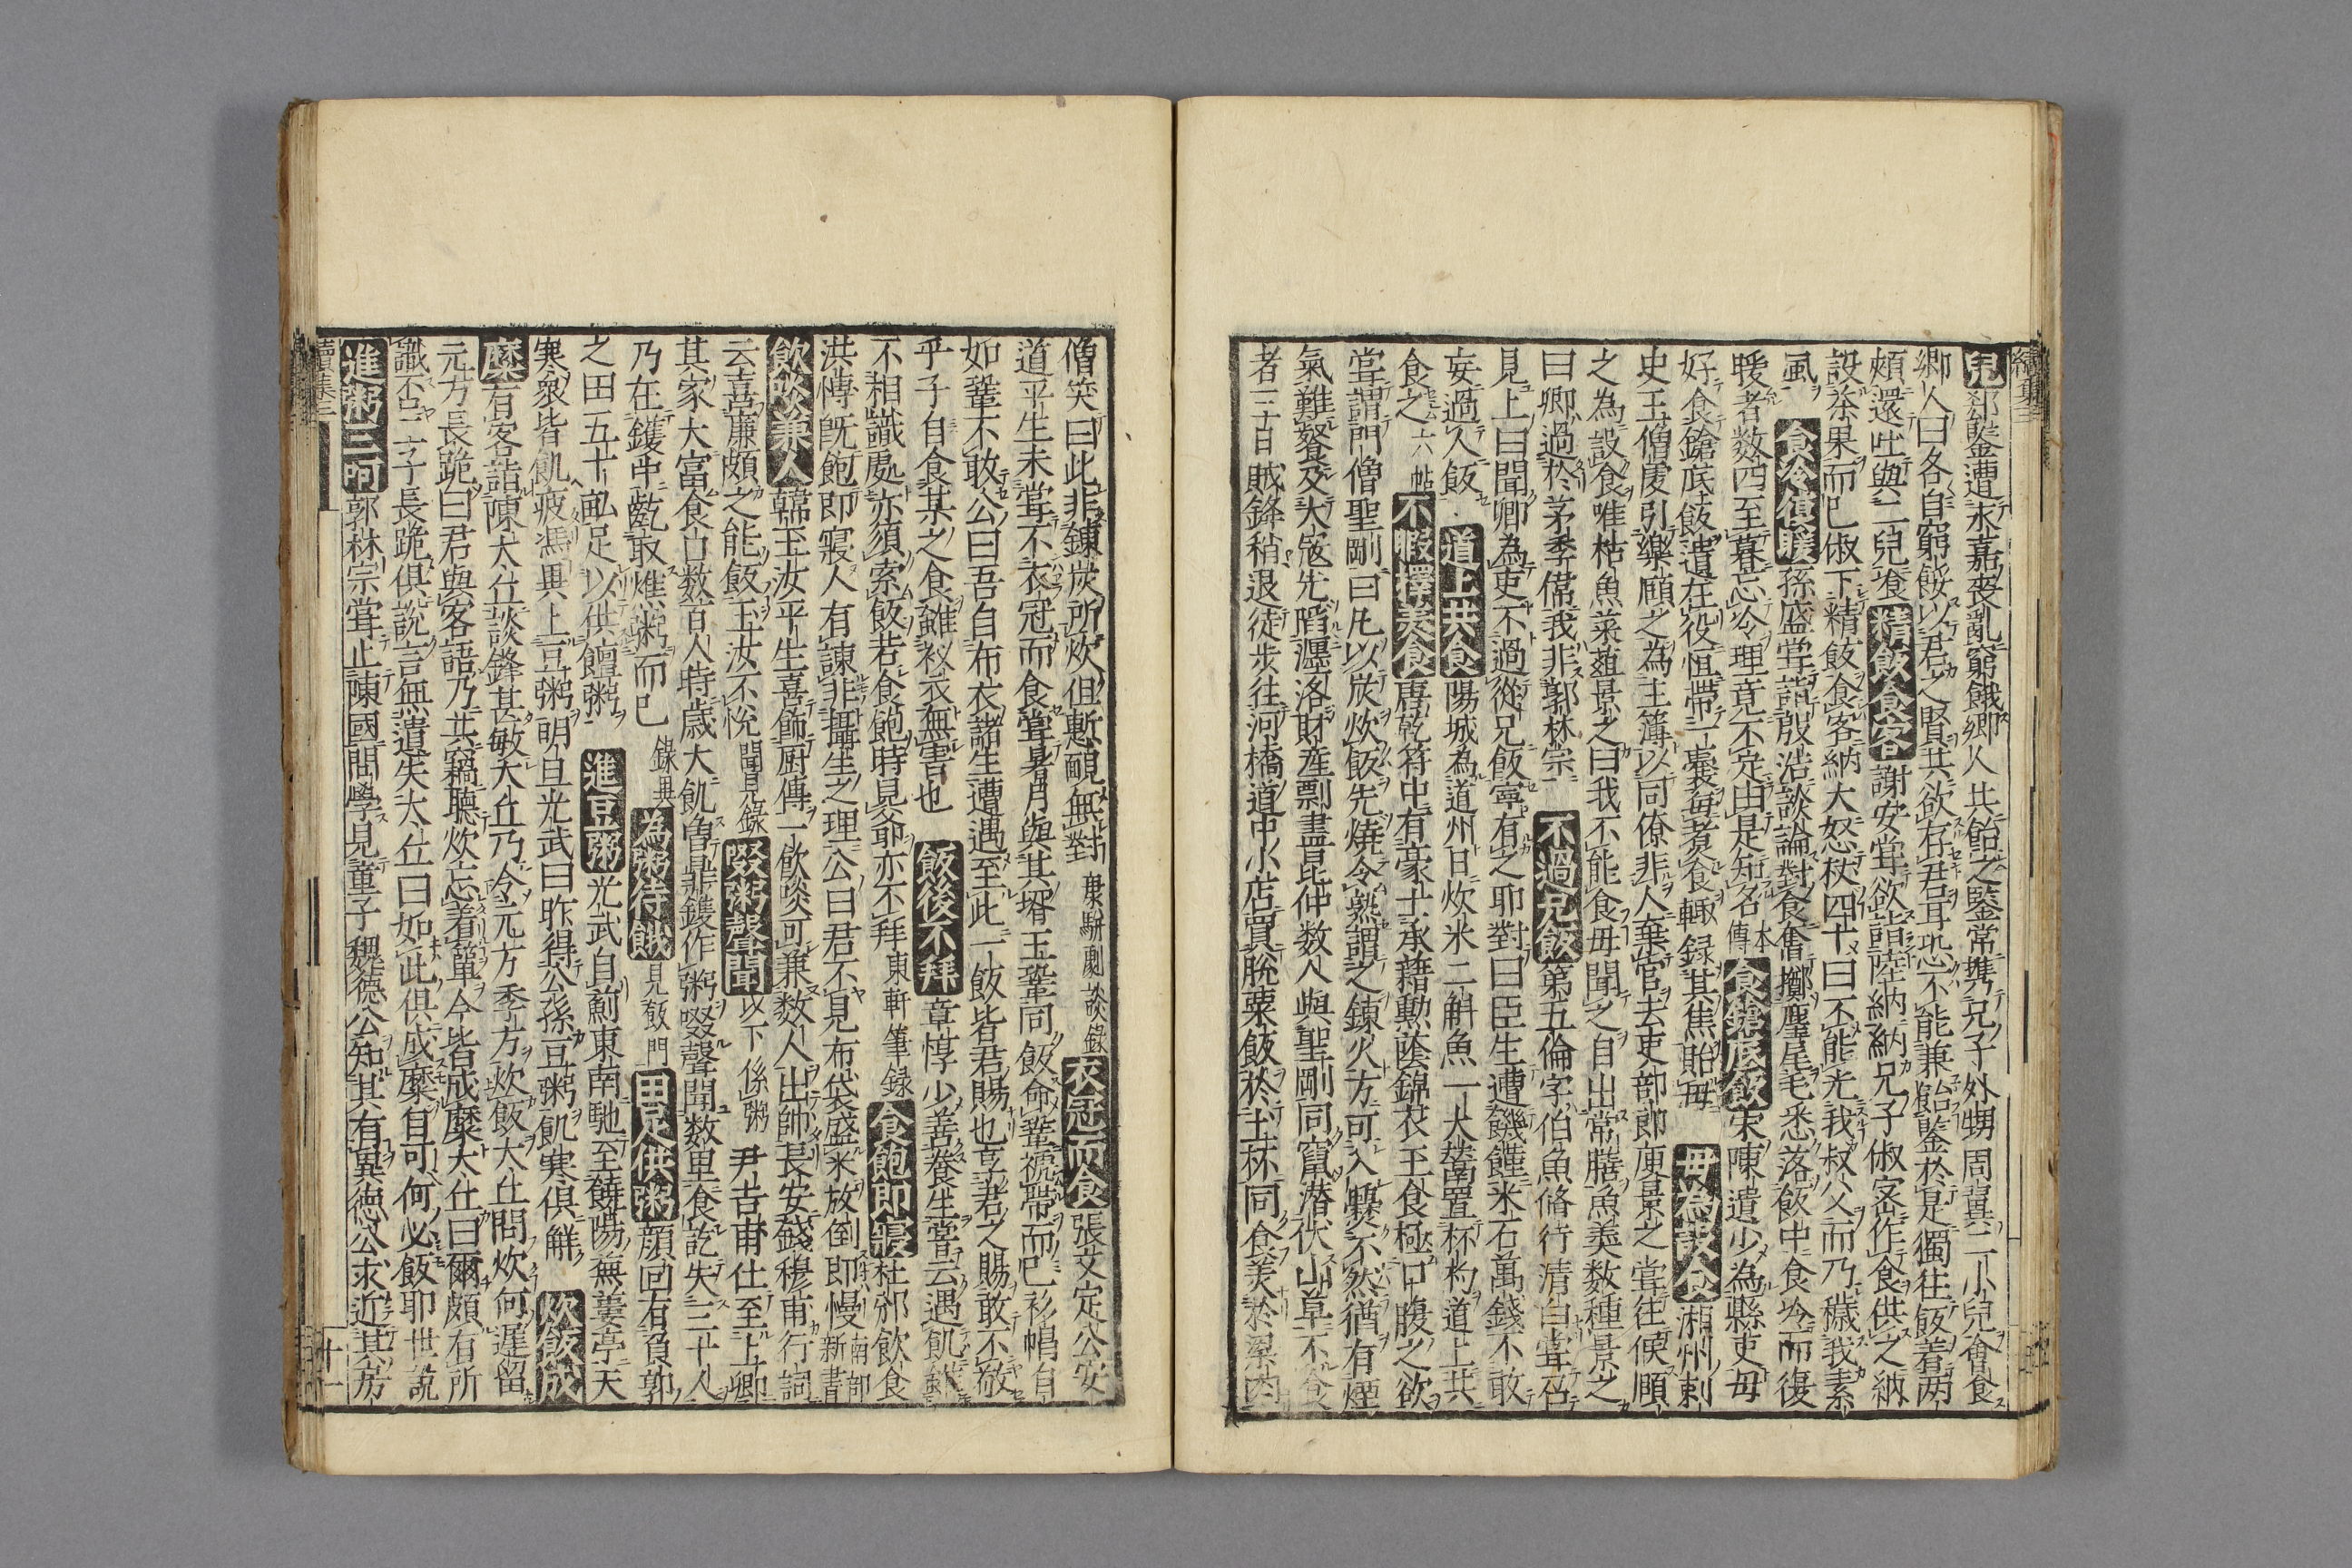 續集三
兒郗鑒遭永嘉喪亂窮餓鄉人共飴之鑒常携兄子外甥周翼二小兒會食
鄉人曰各自窮餒以君之賢共欲存君耳恐不能兼飴鑒於是獨往飯着兩
頰還吐與二兒飡 精飯食客 謝安甞欲詣陸納納兄子俶密作食供之納
設茶果而已俶下精飯食客納大怒杖四十曰不能光我叔父而乃穢我素
風 食冷復暖 孫盛甞詣殷浩談論對食奮擲麈尾毛悉落飯中食冷而復
暖者数四至暮忘冷理竟不定由是知名 本傳 食鎗底飯 宋陳遺少為縣吏母
好食鎗底飯遺在役恒帶一囊每煮食輙録其焦貽母 毋為設食 湘州刺
史王僧虔引樂頤之為主簿以同僚非人棄官去吏部郎庾景之甞往候頤
之為設食唯枯魚菜葅景之曰我不能食毋聞之自出常膳魚羮数種景之
曰卿過於茅季偉我非郭林宗 不過兄飯 第五倫字伯魚脩行清白甞召
見上曰聞卿為吏不過從兄飯寧有之耶對曰臣生遭饑饉米石萬錢不敢
妄過人飯 道上共食 陽城為道州日炊米二斛魚一大鬵置杯杓道上共
食之 六帖 不暇擇羙食 唐乾符中有豪士承藉勲蔭錦衣玉食極口腹之欲
甞謂門僧聖剛曰凡以炭炊飯先燒令熟謂之鍊火方可入爨不然猶有煙
氣難餐及大寇先䧟瀍洛財産剽盡昆仲数人與聖剛同竄潜伏山草不食
者三日賊鋒稍退徒步往河橋道中小店買脫粟飯於土杯同食羙於粱肉
僧笑曰此非鍊炭所炊但慙靦無對 康駢劇談録 衣冠而食 張文定公安
道平生未甞不衣冠而食甞暑月與其壻王鞏同飯命鞏褫帶而已衫㡌自
如鞏不敢公曰吾自布衣諸生遭遇至此一飯皆君賜也享君之賜敢不敬
乎子自食某之食雖衩衣無害也 飯後不拜 章惇少善養生甞云遇飢
不相識處亦須索飯若食飽時見爺亦不拜 東軒筆録 食飽即寢 杜祁飲食
洪慱既飽即寢人有諫非攝生之理公曰君不見布袋盛米放倒即慢 南部新書
飲啖兼人 韓玉汝平生喜飾厨傳一飲啖可兼数人出帥長安錢穆甫行詞
云喜廉頗之能飯玉汝不悅 聞見録 啜粥聲聞 以下係粥 尹吉甫仕至上卿
其家大富食口数百人時歲大飢魯鼎鑊作粥啜聲聞数里食訖失三十人
乃在鑊中齕取燋粥而已 録異 為粥待餓 見飯門 田足供粥 顔回有負郭
之田五十畝足以供饘粥 進豆粥 光武自薊東南馳至饒陽無蔞亭天
寒衆皆飢疲馮異上豆粥明旦光武曰昨得公孫豆粥飢寒俱解 炊飯成
糜 有客詣陳太丘談鋒甚敏太丘乃令元方季方炊飯太丘問炊何遲留
元方長跪曰君與客語乃共竊聽炊忘着簞今皆成糜太丘曰爾頗有所
識否二子長跪俱說言無遺失太丘曰如此俱成糜自可何必飯耶 世說
進粥三呵 郭林宗甞止陳國問學見童子魏德公知其有異德公求近其房
續集三
十一